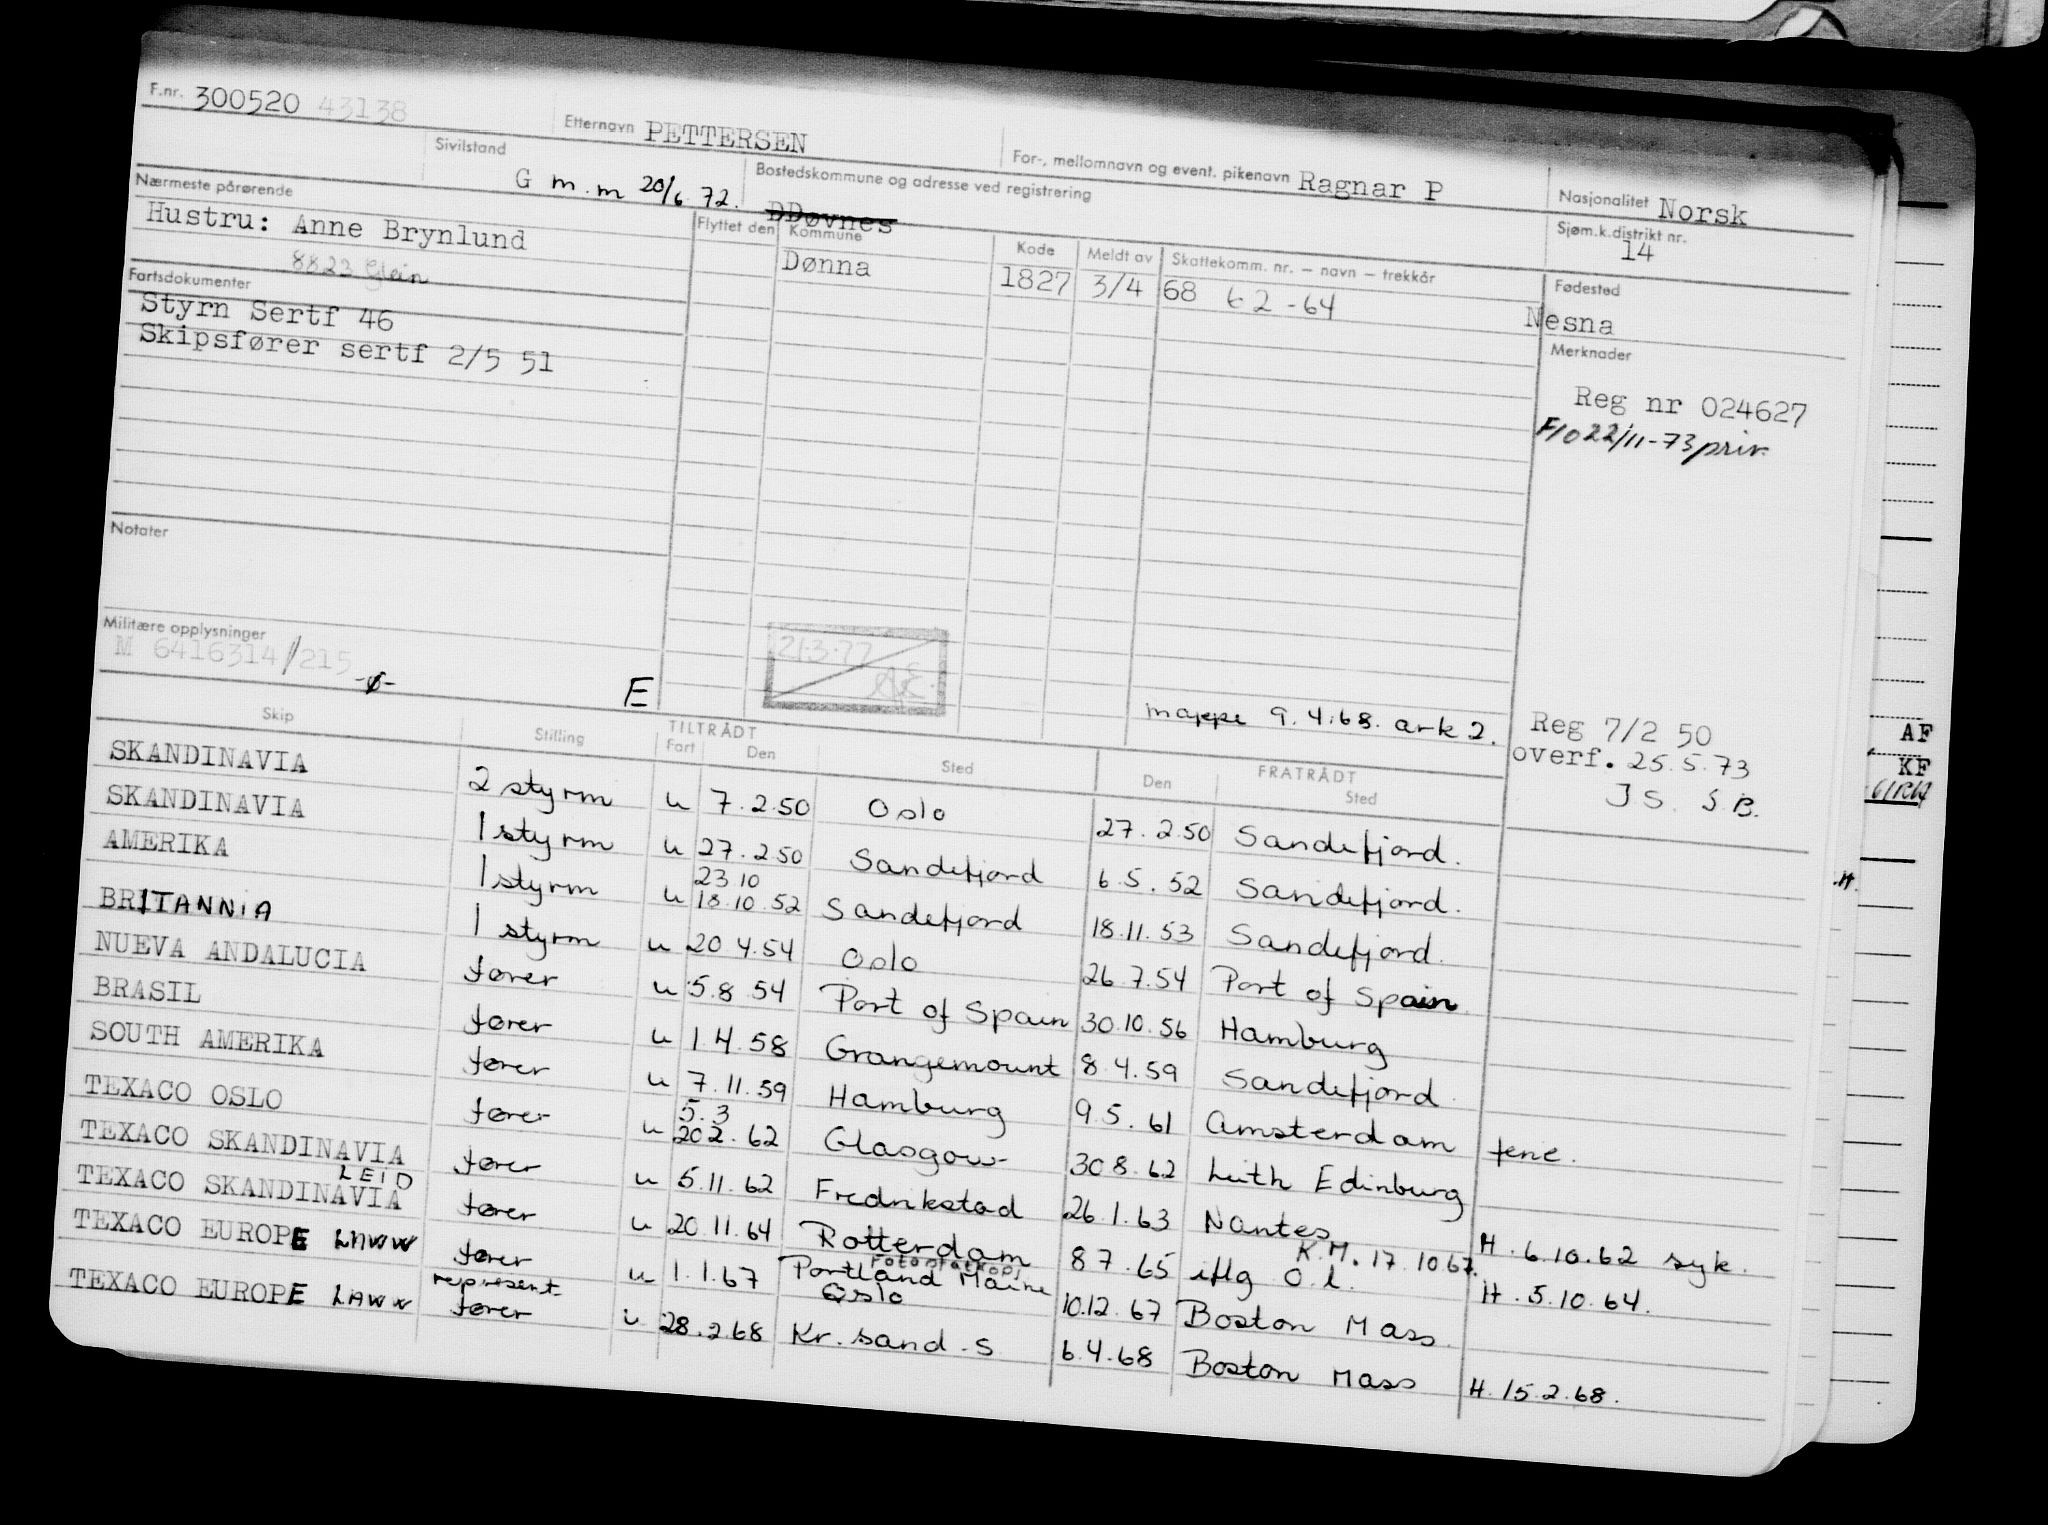 F.nr. 300520 43138 Etternavn PETTERSEN For-, mellomnavn og event. pikenavn Ragnar P Nasjonalitet Norsk
Sivilstand G m.m 20/6 72. Bostedskommune og adresse ved registrering DDøvnes Sjøm.k.distrikt nr. 14
Nærmeste pårørende
Hustru: Anne Brynlund
8823 Glein
Flyttet den Kommune Kode Meldt av Skattekomm. nr. – navn – trekkår
Dønna 1827 3/4 68 62-64
Fødested
Nesna
Fartsdokumenter
Styrn Sertf 46
Skipsfører sertf 2/5 51
Merknader
Reg nr 024627
F/o 22/11-73 priv.
Notater
Militære opplysninger
M 6416314/215 -ø-
E
21·3·77
mappe 9.4.68. ark 2.
Reg 7/2 50
overf. 25.5.73
JS. S.B.
Skip Stilling TILTRÅDT Fart Den Sted FRATRÅDT Den Sted
SKANDINAVIA 2 styrm u 7.2.50 Oslo 27.2.50 Sandefjord.
SKANDINAVIA 1 styrm u 27.2.50 Sandefjord 6.5.52 Sandefjord.
23 10
AMERIKA 1 styrm u 18.10.52 Sandefjord 18.11.53 Sandefjord.
BRITANNIA 1 styrm u 20 4.54 Oslo 26.7.54 Port of Spain
NUEVA ANDALUCIA fører u 5.8 54 Port of Spain 30.10.56 Hamburg
BRASIL fører u 1.4.58 Grangemount 8.4.59 Sandefjord
SOUTH AMERIKA fører u 7.11.59 Hamburg 9.5.61 Amsterdam ferie.
5.3
TEXACO OSLO fører u 20 2.62 Glasgow 30 8.62 Leith Edinburg
TEXACO SKANDINAVIA fører u 5.11.62 Fredrikstad 26.1.63 Nantes H. 6.10.62 syk.
LEID
K.M. 17.10 67.
TEXACO SKANDINAVIA fører u 20.11.64 Rotterdam 8 7.65 iflg O.l. H. 5.10 64.
Fotostatkopi
TEXACO EUROPE LAWW fører u 1.1.67 Portland Maine 10.12.67 Boston Mass.
represent. Oslo
TEXACO EUROPE LAWW fører u 28.2.68 Kr.sand.S 6.4.68 Boston Mass H. 15.2.68.
AF
KF